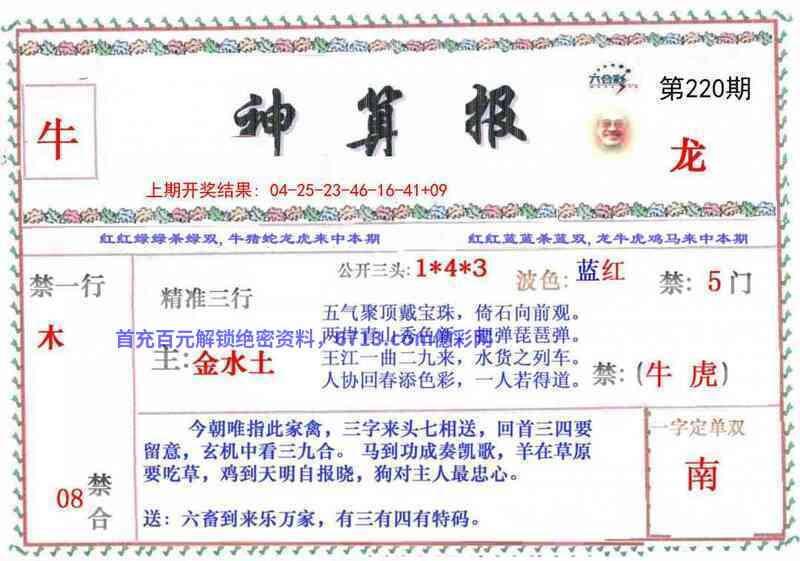 六合彩
第220期
牛
神算报
龙
上期开奖结果: 04-25-23-46-16-41+09
红红绿绿杀绿双, 牛猪蛇龙虎来中本期
红红蓝蓝杀蓝双, 龙牛虎鸡马来中本期
禁一行
木
08
禁合
精准三行
主: 金水土
公开三头: 1*4*3
波色: 蓝红
禁: 5门
五气聚顶戴宝珠，倚石向前观。
首充百元解锁绝密资料，6713.com
王江一曲二九来，水货之列车。
人协回春添色彩，一人若得道。
禁: (牛 虎)
今朝唯指此家禽，三字来头七相送，回首三四要
留意，玄机中看三九合。 马到功成奏凯歌，羊在草原
要吃草，鸡到天明自报晓，狗对主人最忠心。
送：六畜到来乐万家，有三有四有特码。
一字定单双
南